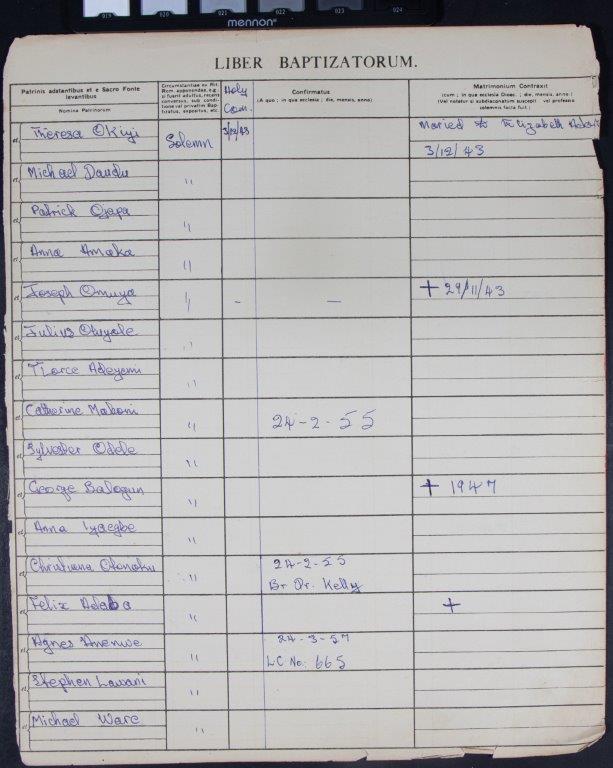 019 020 021 022 023 024
mennon
LIBER BAPTIZATORUM.
Patrinis adstantibus et e Sacro Fonte levantibus
Nomina Patrinorum
Circumstantiae ex Rit. Rom. apponendae, e.g. si fuerit adultus, recens conversus, sub conditione vel privatim Baptizatus, expositus, etc.
Holy Com.
Confirmatus
(A quo ; in qua ecclesia ; die, mensis, anno)
Matrimonium Contraxit
(cum ; in qua ecclesia Dioec. ; die, mensis, anno :
(Vel notatur si subdiaconatum suscepit vel professio solemnis facta fuit)
Theresa Okiyi Solemn 3/12/43 Maried to Elizabeth
3/12/43
Michael Daudu "
Patrick Ojapa "
Anna Amaka "
Joseph Omuya " - - + 29/11/43
Julius "
Adeyemi "
Catherine Makoni " 24-2-55
Sylvester Odele "
George Balogun " + 1947
Anna Iyaegbe "
Christiana " 24-2-55
Br Dr. Kelly
Felix Adaba " +
Agnes Anenwe " 24-3-57
LC No: 665
Stephen Lawani "
Michael Ware "